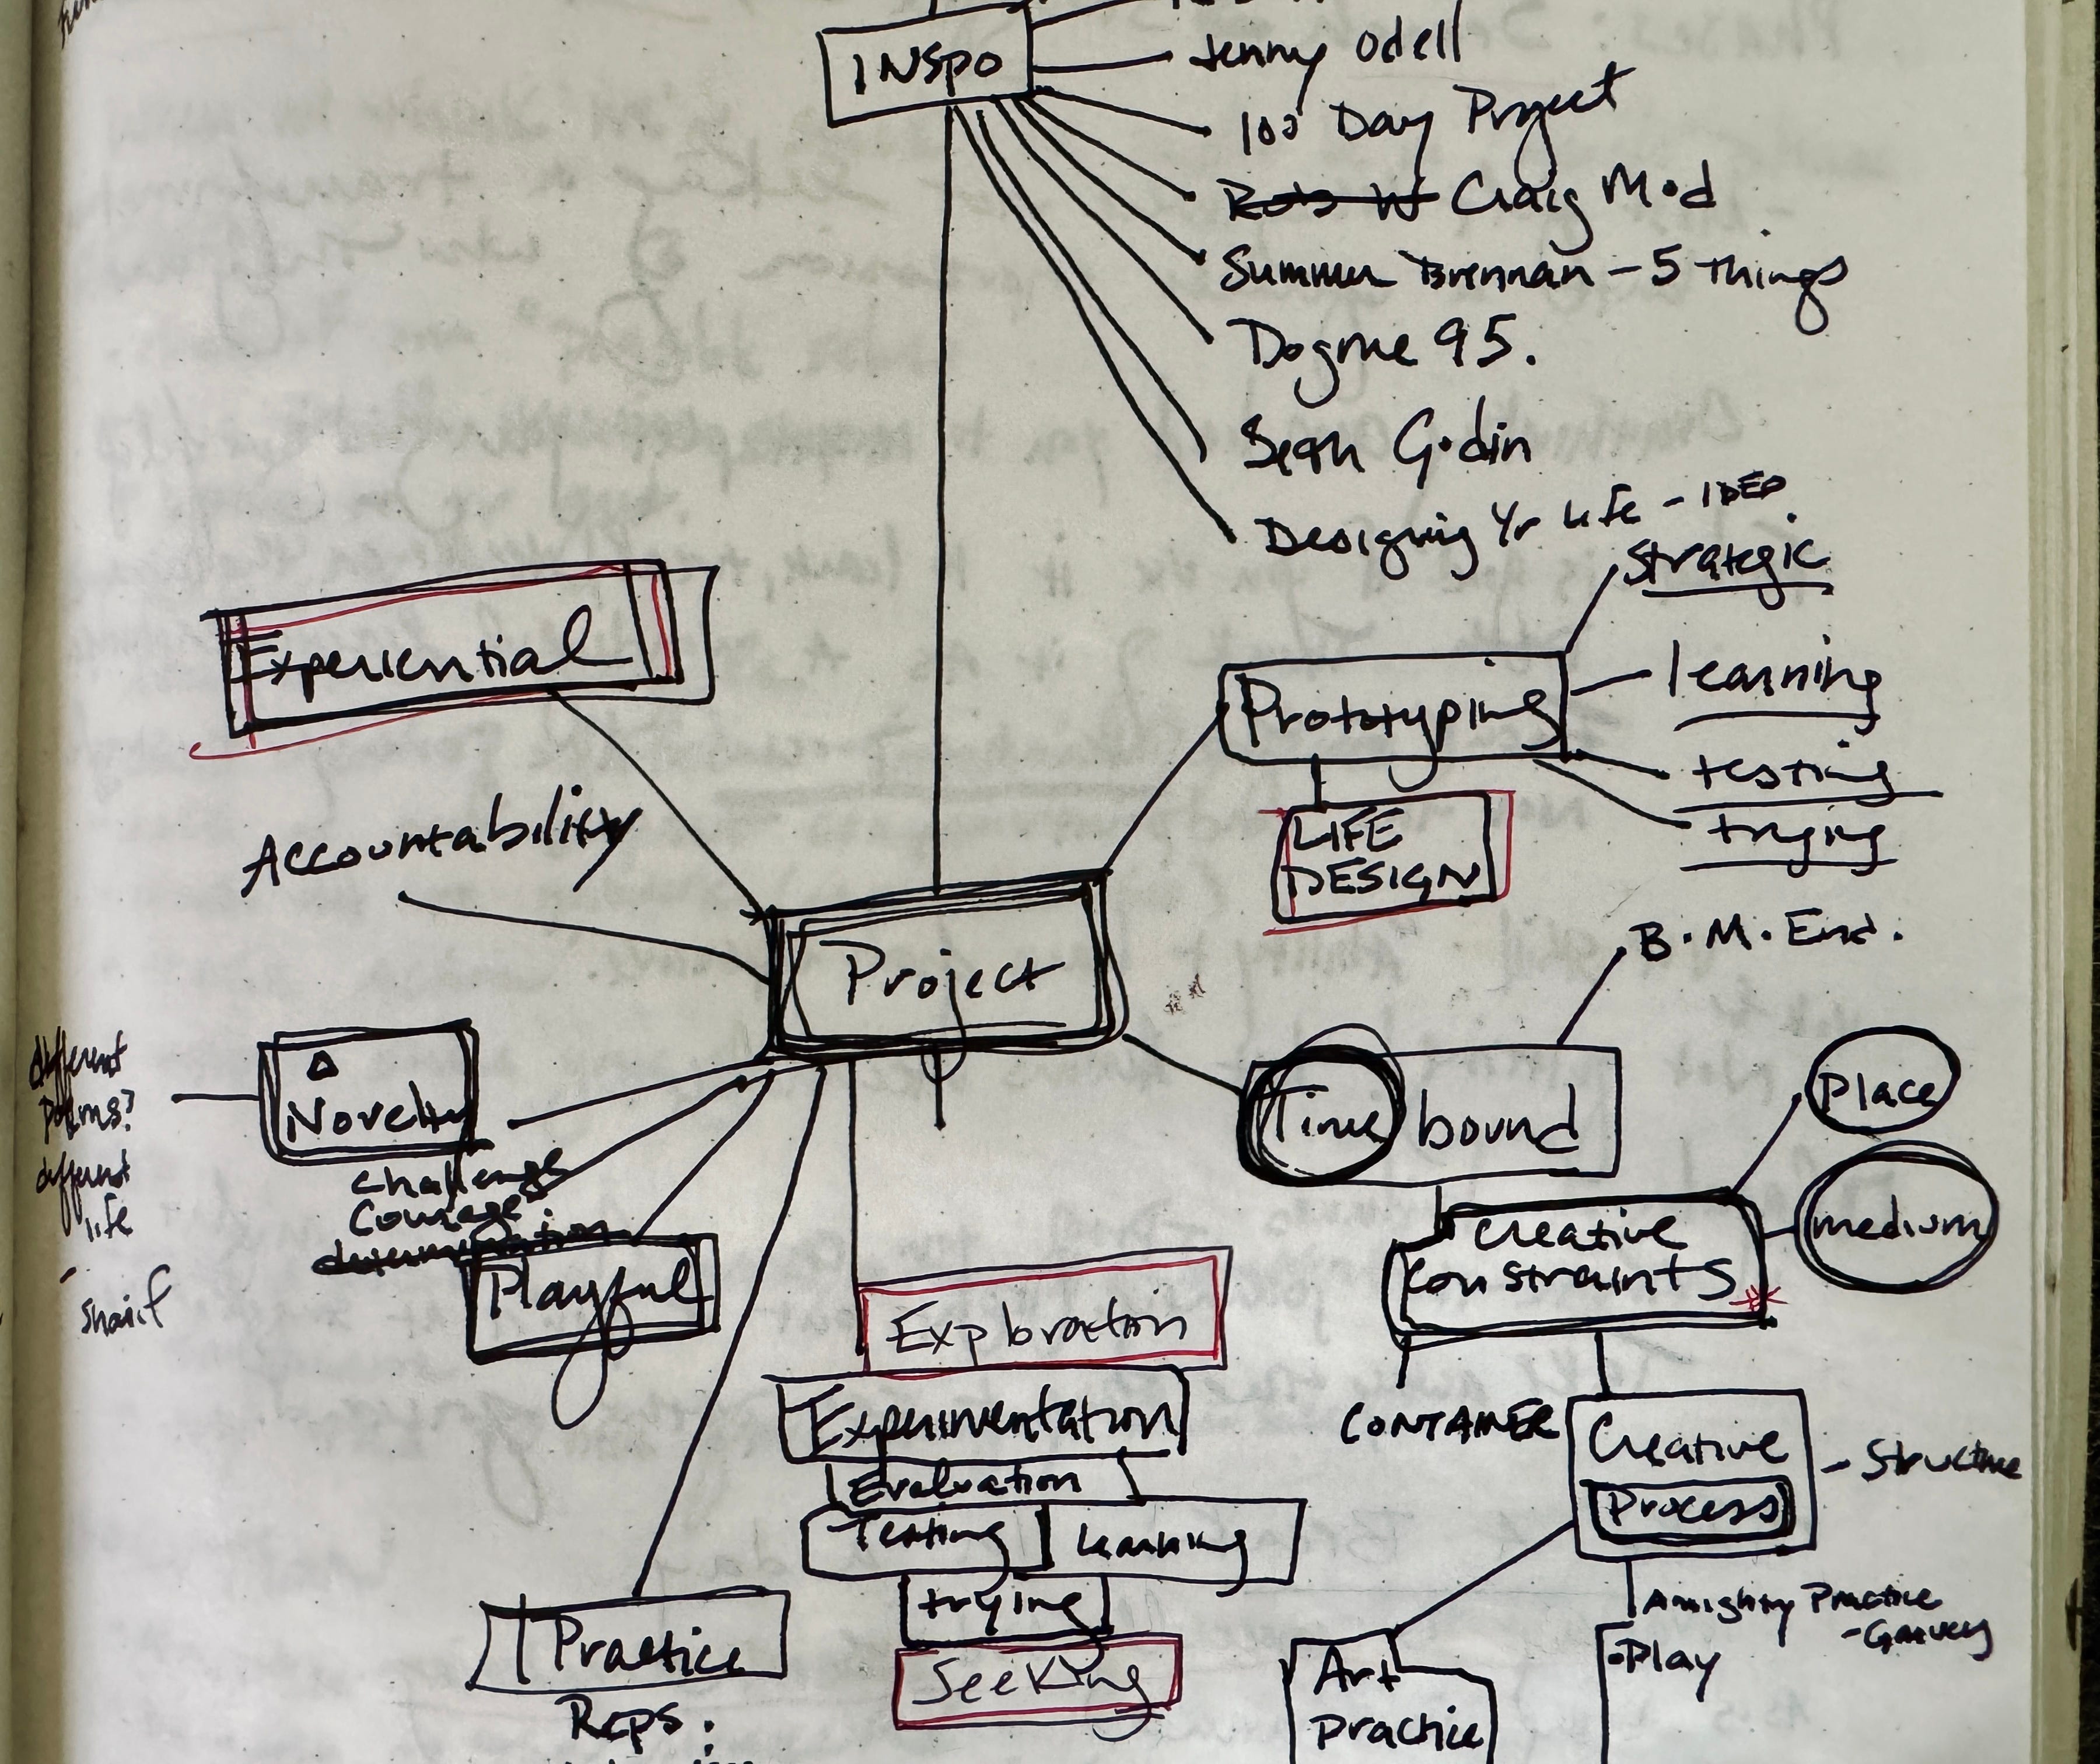 INSPO
Jenny Odell
100 Day Project
Craig Mod
Summer Brennan - 5 Things
Dogme 95.
Seth Godin
Designing Yr Life - IDEO
Strategic
Experiential
Prototyping
learning
testing
trying
LIFE
DESIGN
Accountability
Project
B. M. End.
Time bound
Place
medium
Creative
Constraints *
CONTAINER
Creative
Process
- Structure
Almighty Practice
- Garvey
- Play
Art
Practice
different
different
life
Novelty
Challenge
Courage
determination
Playful
Exploration
Experimentation
Evaluation
Testing
Learning
trying
Seeking
Practice
Reps.